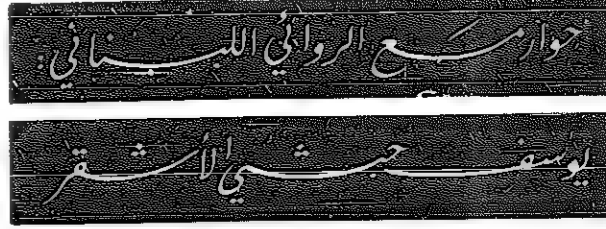 حوار مع الروائي اللبناني :
يوسف حبشي الأشقر